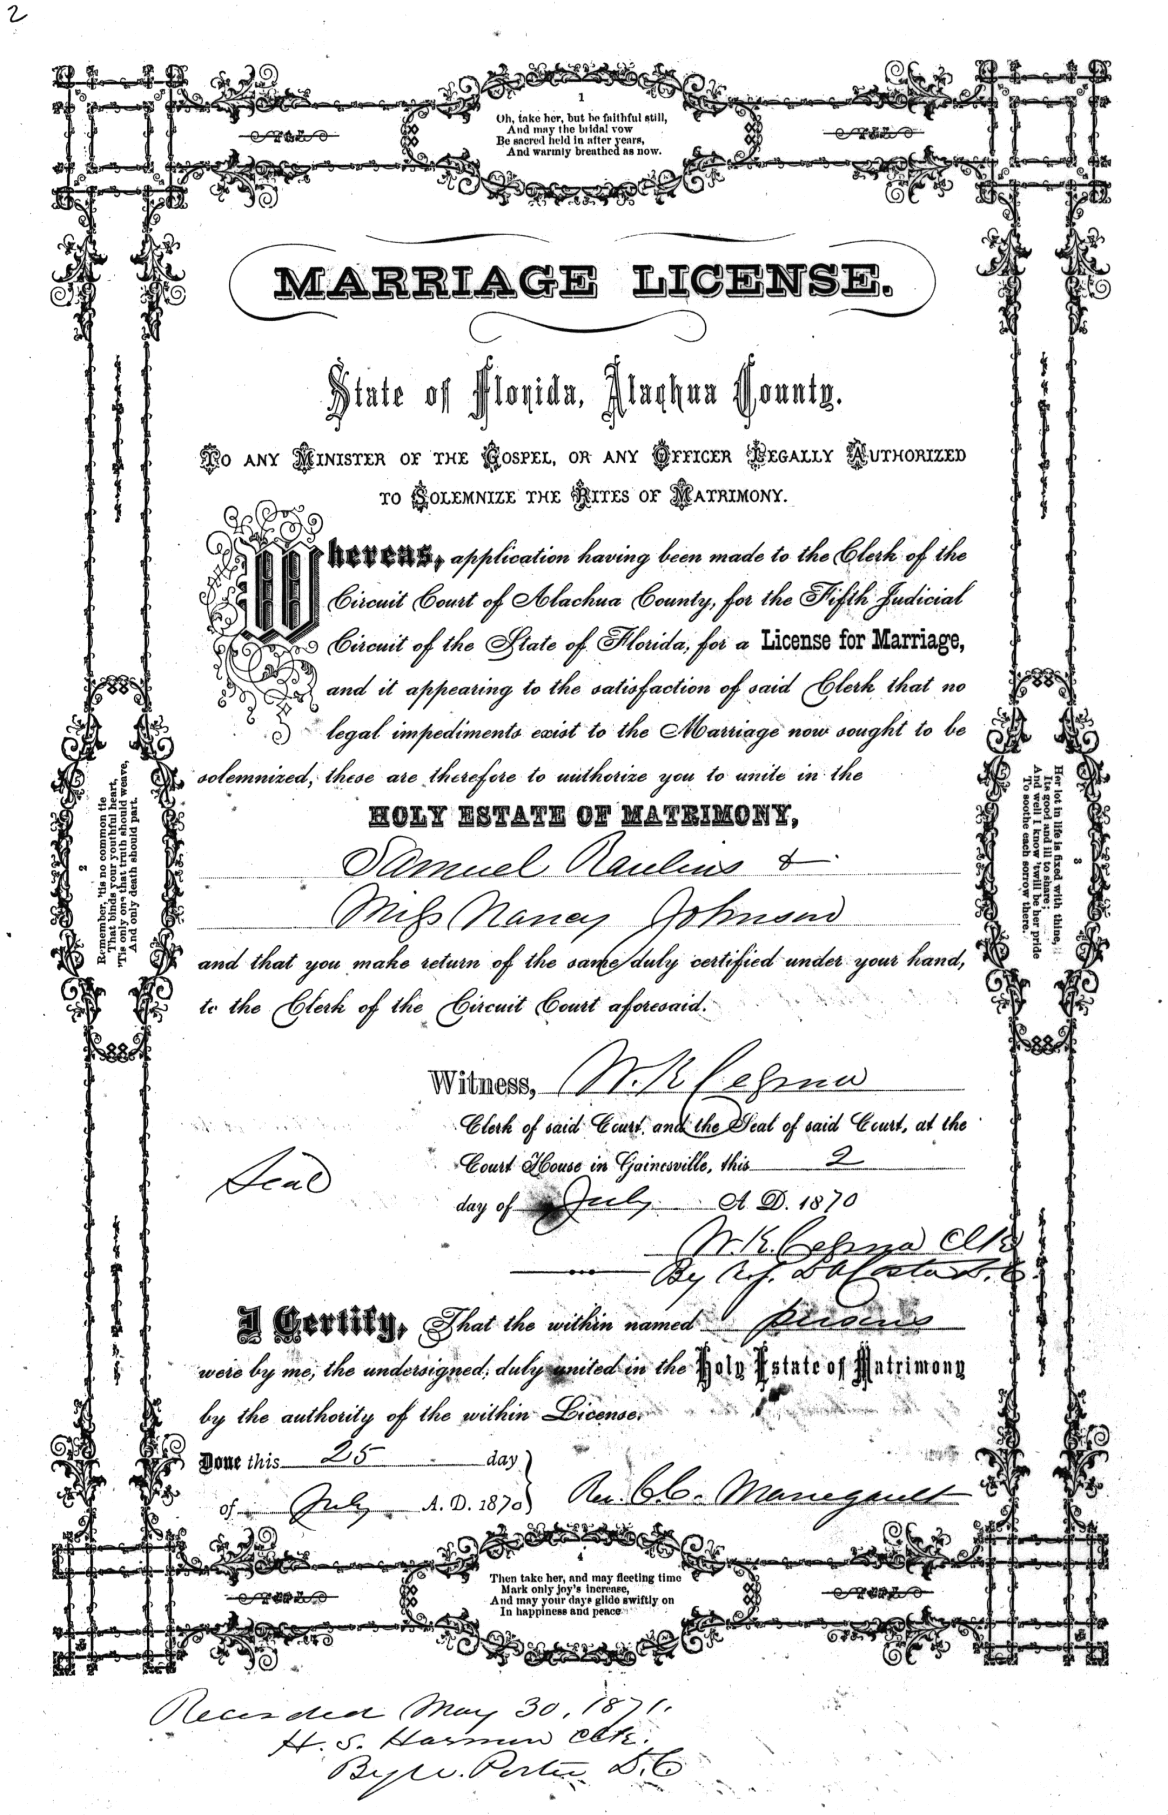 2
1
Oh, take her, but be faithful still,
And may the bridal vow
Be sacred held in after years,
And warmly breathed as now.
MARRIAGE LICENSE.
State of Florida, Alachua County.
TO ANY MINISTER OF THE GOSPEL, OR ANY OFFICER LEGALLY AUTHORIZED
TO SOLEMNIZE THE RITES OF MATRIMONY.
Whereas, application having been made to the Clerk of the
Circuit Court of Alachua County, for the Fifth Judicial
Circuit of the State of Florida, for a License for Marriage,
and it appearing to the satisfaction of said Clerk that no
legal impediments exist to the Marriage now sought to be
solemnized, these are therefore to authorize you to unite in the
HOLY ESTATE OF MATRIMONY,
Samuel Raulins &
Miss Nancy Johnson
and that you make return of the same duly certified under your hand,
to the Clerk of the Circuit Court aforesaid.
Witness, W. K. Cessna
Clerk of said Court, and the Seal of said Court, at the
Court House in Gainesville, this 2
Seal
day of July A. D. 1870
W. K. Cessna Clk
By DaCosta D. C.
I Certify, That the within named persons
were by me, the undersigned, duly united in the Holy Estate of Matrimony
by the authority of the within License.
Done this 25 day
of July A. D. 1870
Rev. C. C. Manegault
2
Remember, 'tis no common tie
That binds your youthful heart,
'Tis only one that truth should weave,
And only death should part.
3
Her lot in life is fixed with thine,
Its good and ill to share;
And well I know 'twill be her pride
To soothe each sorrow there.
4
Then take her, and may fleeting time
Mark only joy's increase,
And may your days glide swiftly on
In happiness and peace
Recorded May 30, 1871.
H. S. Harmon Clk.
By W. Porter D. C